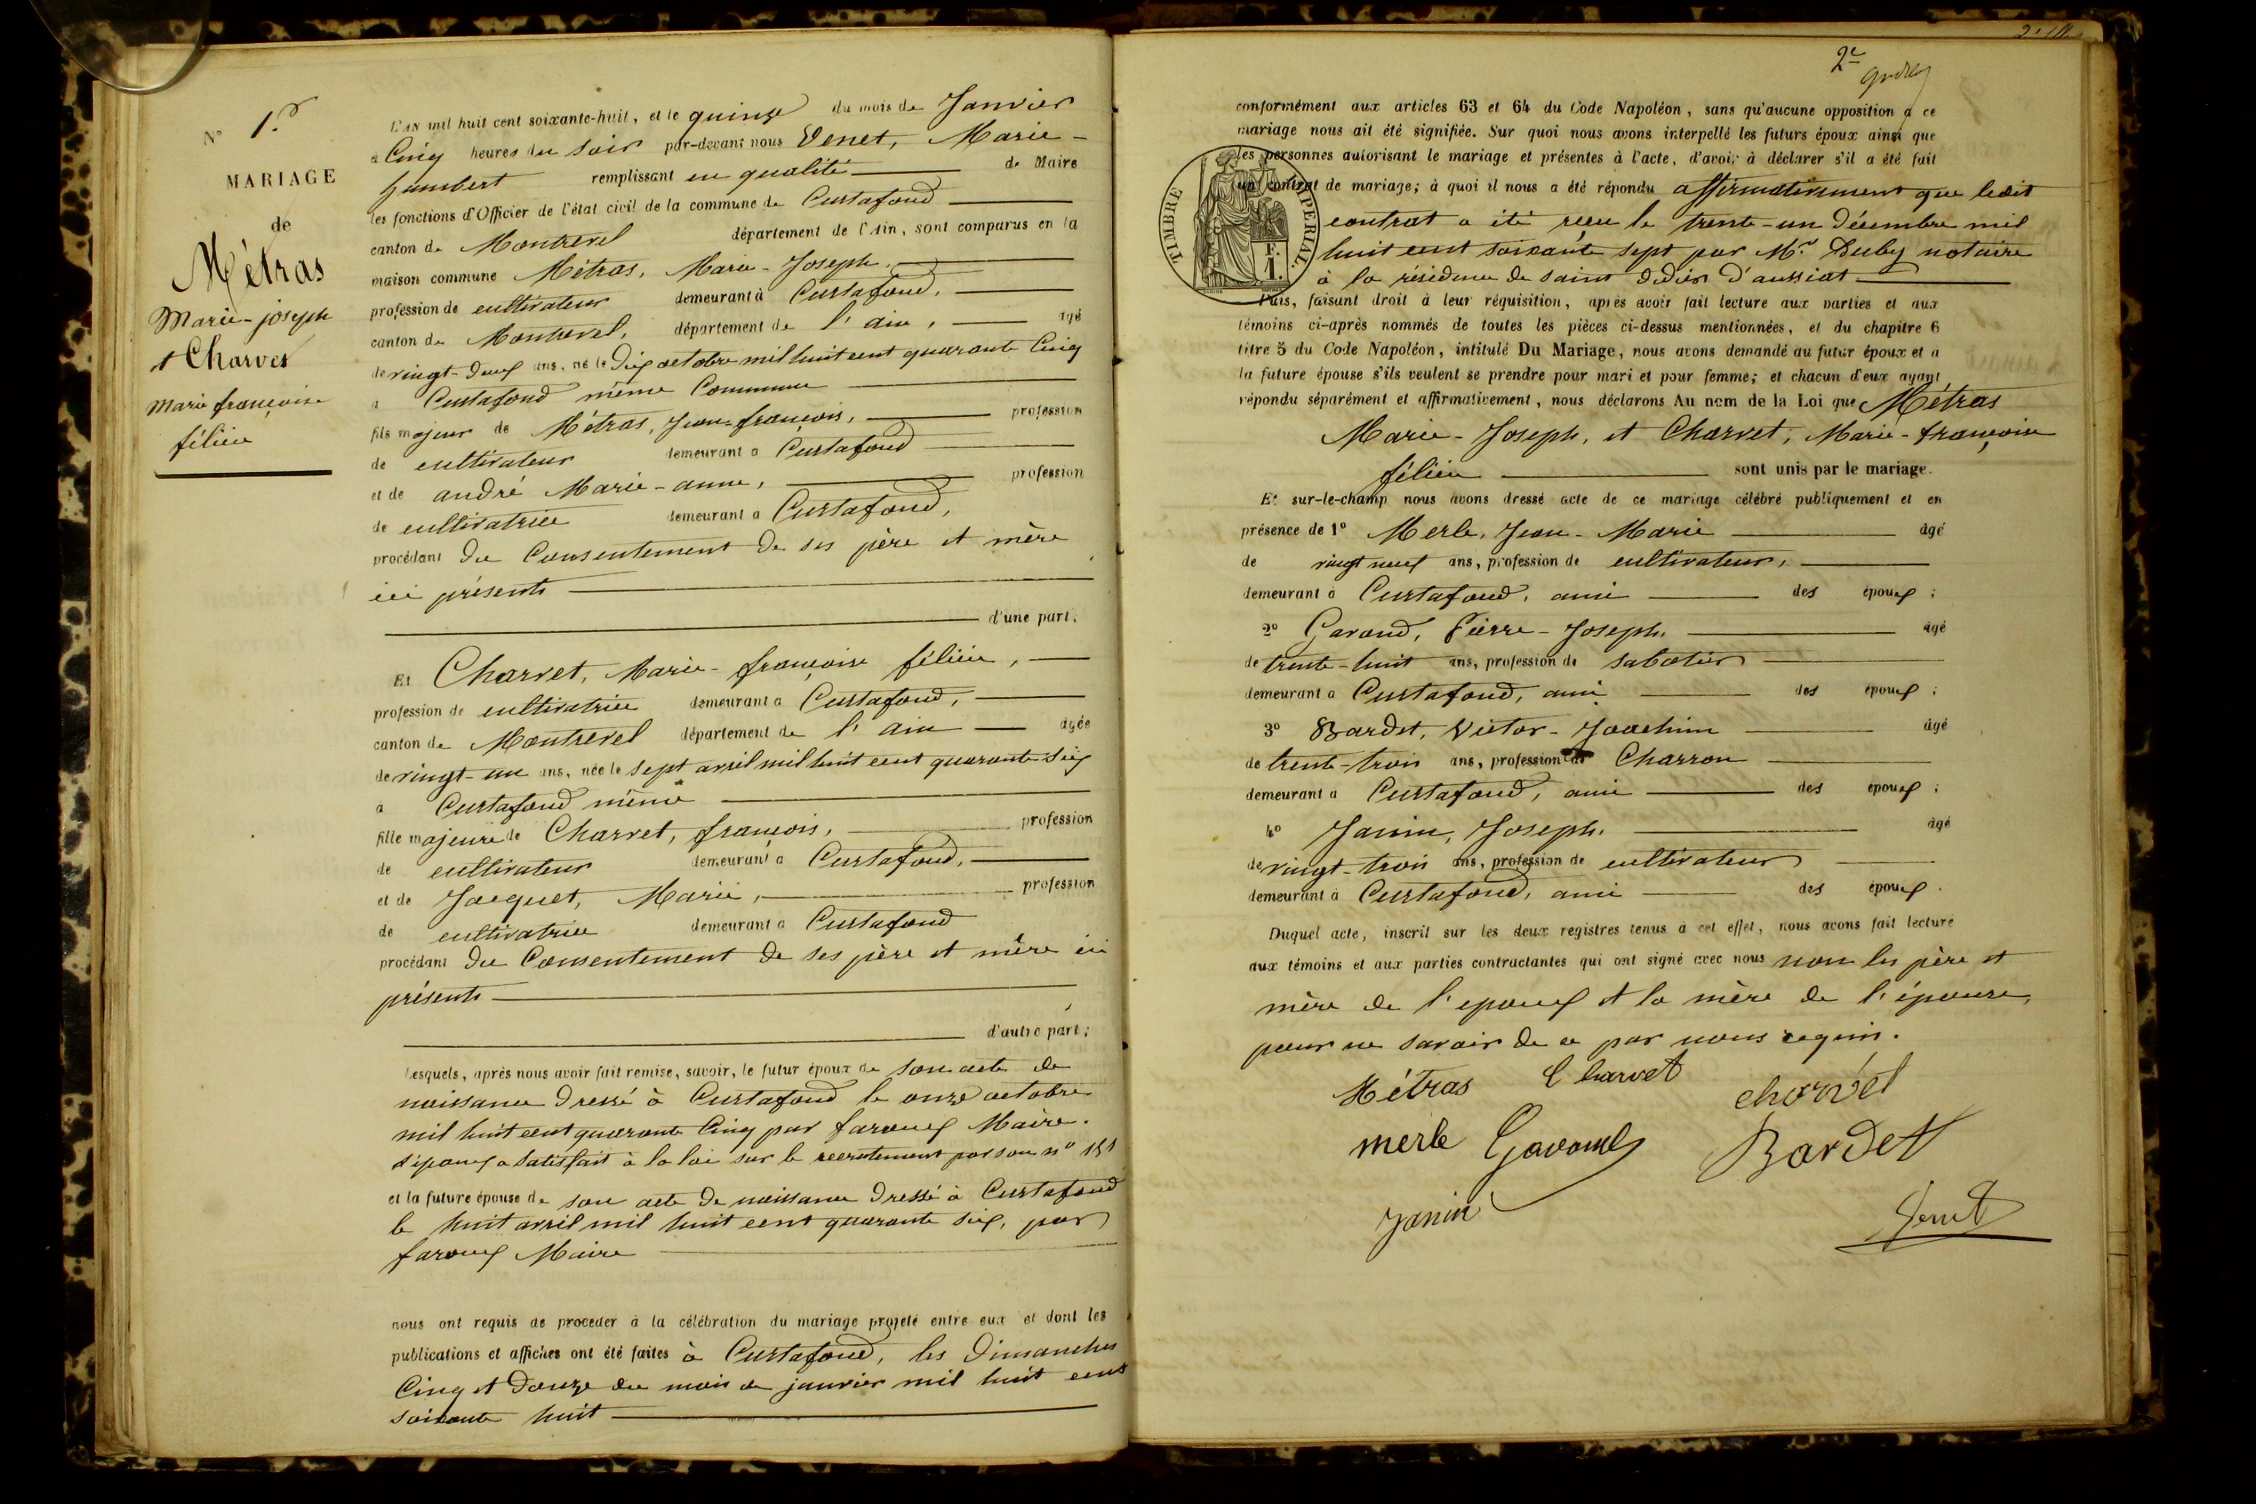 N° 1.er
MARIAGE
de
Métras
Marie-joseph
et Charvet
Marie françoise
félicie
L'AN mil huit cent soixante-huit, et le quinze du mois de Janvier
à Cinq heures du soir par-devant nous Venet, Marie-
humbert remplissant en qualité de Maire
les fonctions d'Officier de l'état civil de la commune de Curtafond
canton de Montrevel département de l'Ain, sont comparus en la
maison commune Métras, Marie-Joseph,
profession de cultivateur demeurant à Curtafond,
canton de Montrevel, département de l'ain, âgé
de vingt-deux ans, né le Dix octobre mil huit cent quarante Cinq
à Curtafond même Commune
fils majeur de Métras, Jean-françois, profession
de cultivateur demeurant à Curtafond
et de andré Marie-anne, profession
de cultivatrice demeurant à Curtafond,
procédant du Consentement de ses père et mère
ici présents
d'une part;
Et Charvet, Marie-françoise félicie,
profession de cultivatrice demeurant à Curtafond,
canton de Montrevel département de l'ain âgée
de vingt-un ans, née le sept avril mil huit cent quarante Six
à Curtafond même
fille majeure de Charvet, françois, profession
de cultivateur demeurant à Curtafond,
et de Jacquet, Marie, profession
de cultivatrice demeurant à Curtafond
procédant du Consentement de ses père et mère ici
présents
d'autre part;
Lesquels, après nous avoir fait remise, savoir, le futur époux de son acte de
naissance dressé à Curtafond le onze octobre
mil huit cent quarante Cinq par faroux Maire.
l'époux a satisfait à la loi sur le recrutement par son n° 151
et la future épouse de son acte de naissance dressé à Curtafond
le huit avril mil huit cent quarante six, par
faroux Maire
nous ont requis de procéder à la célébration du mariage projeté entre eux et dont les
publications et affiches ont été faites à Curtafond, les Dimanches
Cinq et Douze du mois de janvier mil huit cent
soixante huit
2e
conformément aux articles 63 et 64 du Code Napoléon, sans qu'aucune opposition à ce
mariage nous ait été signifiée. Sur quoi nous avons interpellé les futurs époux ainsi que
les personnes autorisant le mariage et présentes à l'acte, d'avoir à déclarer s'il a été fait
un contrat de mariage; à quoi il nous a été répondu affirmativement que ledit
contrat a été reçu le trente-un Décembre mil
huit cent soixante sept par Mr. Duby notaire
à la résidence de saint didier d'aussiat
TIMBRE IMPERIAL.
Puis, faisant droit à leur réquisition, après avoir fait lecture aux parties et aux
témoins ci-après nommés de toutes les pièces ci-dessus mentionnées, et du chapitre 6
titre 5 du Code Napoléon, intitulé Du Mariage, nous avons demandé au futur époux et à
la future épouse s'ils veulent se prendre pour mari et pour femme; et chacun d'eux ayant
répondu séparément et affirmativement, nous déclarons Au nom de la Loi que Métras
Marie-Joseph, et Charvet, Marie-françoise
félicie sont unis par le mariage.
Et sur-le-champ nous avons dressé acte de ce mariage célébré publiquement et en
présence de 1° Merle, Jean-Marie âgé
de vingt neuf ans, profession de cultivateur,
demeurant à Curtafond, ami des époux;
2° Gavand, Pierre-Joseph, âgé
de trente-huit ans, profession de sabotier
demeurant à Curtafond, ami des époux;
3° Bardet, Victor-Joachim âgé
de trente-trois ans, profession de Charron
demeurant à Curtafond, ami des époux;
4° Janin, Joseph, âgé
de vingt-trois ans, profession de cultivateur
demeurant à Curtafond, ami des époux.
Duquel acte, inscrit sur les deux registres tenus à cet effet, nous avons fait lecture
aux témoins et aux parties contractantes qui ont signé avec nous non les père et
mère de l'époux et la mère de l'épouse,
pour ne savoir de ce par nous requis.
Métras Charvet charvet
merle Gavand Bardet
Janin Venet